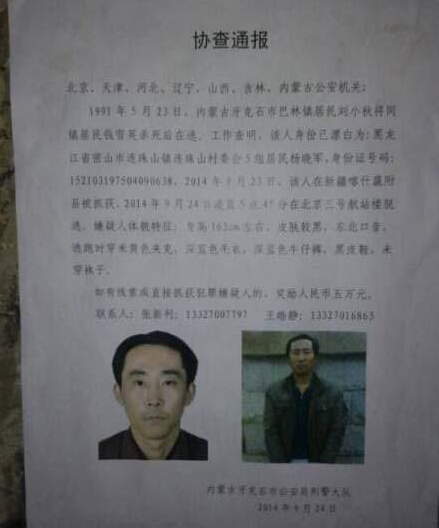 协查通报
北京、天津、河北、辽宁、山西、吉林、内蒙古公安机关：
1991年5月23日，内蒙古牙克石市巴林镇居民刘小秋将同
镇居民钱雪英杀死后在逃。工作查明，该人身份已漂白为：黑龙
江省密山市连珠山镇连珠山村委会5组居民杨晓军，身份证号码：
152103197504090638，2014年9月23日，该人在新疆喀什疏附
县被抓获，2014年9月24日凌晨5点45分在北京三号航站楼脱
逃。嫌疑人体貌特征：身高162cm左右，皮肤较黑，东北口音，
逃跑时穿米黄色夹克，深蓝色毛衣，深蓝色牛仔裤，黑皮鞋，未
穿袜子。
如有线索或直接抓获犯罪嫌疑人的，奖励人民币五万元。
联系人：张新利：13327007797 王皓静：13327016863
内蒙古牙克石市公安局刑警大队
2014年9月24日